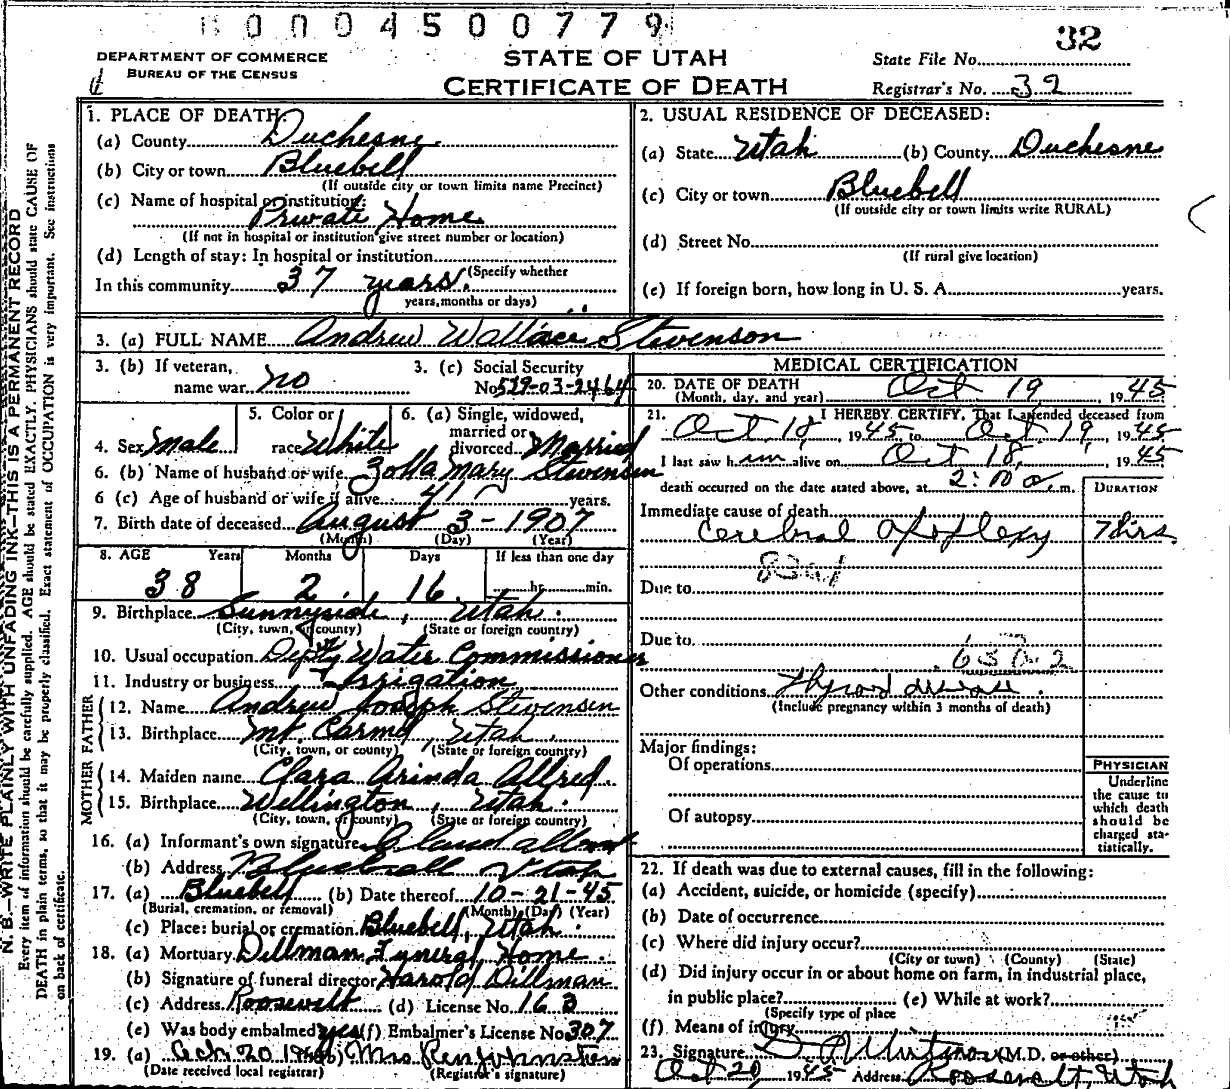 0004500779
32
DEPARTMENT OF COMMERCE
BUREAU OF THE CENSUS
STATE OF UTAH
CERTIFICATE OF DEATH
State File No.
Registrar's No. 32
N. B.—WRITE PLAINLY WITH UNFADING INK—THIS IS A PERMANENT RECORD
Every item of information should be carefully supplied. AGE should be stated EXACTLY. PHYSICIANS should state CAUSE OF
DEATH in plain terms, so that it may be properly classified. Exact statement of OCCUPATION is very important. See instructions
on back of certificate.
1. PLACE OF DEATH:
(a) County Duchesne
(b) City or town Bluebell
(If outside city or town limits name Precinct)
(c) Name of hospital or institution:
Private Home
(If not in hospital or institution give street number or location)
(d) Length of stay: In hospital or institution
(Specify whether
In this community 37 years.
years, months or days)
2. USUAL RESIDENCE OF DECEASED:
(a) State Utah (b) County Duchesne
(c) City or town Bluebell
(If outside city or town limits write RURAL)
(d) Street No.
(If rural give location)
(e) If foreign born, how long in U. S. A. years.
3. (a) FULL NAME Andrew Wallace Stevenson
3. (b) If veteran,
name war no
3. (c) Social Security
No. 529-03-2464
4. Sex Male
5. Color or
race White
6. (a) Single, widowed,
married or
divorced Married
6. (b) Name of husband or wife Zolla Mary Stevensen
6 (c) Age of husband or wife if alive 41 years.
7. Birth date of deceased August 3 - 1907
(Month) (Day) (Year)
8. AGE Years Months Days If less than one day
38 2 16 hr. min.
9. Birthplace Sunnyside, Utah.
(City, town, or county) (State or foreign country)
10. Usual occupation Depty Water Commissioner
11. Industry or business Irrigation
FATHER
12. Name Andrew Joseph Stevensen
13. Birthplace Mt. Carmel, Utah.
(City, town, or county) (State or foreign country)
MOTHER
14. Maiden name Clara Arinda Allred.
15. Birthplace Wellington, Utah.
(City, town, or county) (State or foreign country)
16. (a) Informant's own signature
(b) Address Bluebell Utah
17. (a) Bluebell (b) Date thereof 10-21-45
(Burial, cremation, or removal) (Month) (Day) (Year)
(c) Place: burial or cremation Bluebell, Utah.
18. (a) Mortuary Dillman Funeral Home.
(b) Signature of funeral director Harold Dillman
(c) Address Roosevelt (d) License No. 163
(e) Was body embalmed yes (f) Embalmer's License No. 307
19. (a) Oct. 20 (b) Mrs. Johnston
(Date received local registrar) (Registrar's signature)
MEDICAL CERTIFICATION
20. DATE OF DEATH Oct 19, 1945
(Month, day, and year)
21. I HEREBY CERTIFY, That I attended deceased from
Oct. 18, 1945 to Oct. 19, 1945
I last saw him alive on Oct 18, 1945
death occurred on the date stated above, at 2:00 a.m.
DURATION
Immediate cause of death
Cerebral apoplexy 7 hrs.
Due to
Due to
Other conditions Thyroid disease.
(Include pregnancy within 3 months of death)
Major findings:
Of operations
Of autopsy
PHYSICIAN
Underline
the cause to
which death
should be
charged sta-
tistically.
22. If death was due to external causes, fill in the following:
(a) Accident, suicide, or homicide (specify)
(b) Date of occurrence
(c) Where did injury occur?
(City or town) (County) (State)
(d) Did injury occur in or about home on farm, in industrial place,
in public place? (e) While at work?
(Specify type of place
(f) Means of injury
23. Signature (M.D. or other)
Oct 20, 1945 Address Roosevelt, Utah